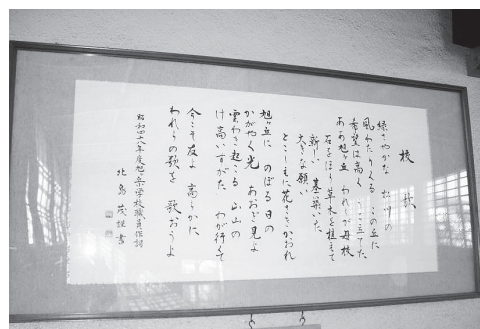 校歌
緑さやかな 松川の
風わたりくる この丘に
希望は高く うち立てた
ああ旭ヶ丘 われらが母校
石をほり 草木を植えて
新しい 基築いた
大きな願い
とこしえに花さきかおれ
旭ヶ丘に のぼる日の
かがやく光 あおぎ見よ
雲わき起こる 山山の
け高いすがた わが行くて
今こそ友よ 高らかに
われらの歌を 歌おうよ
昭和四十八年度旭ヶ丘学校職員作詞
北島茂 書